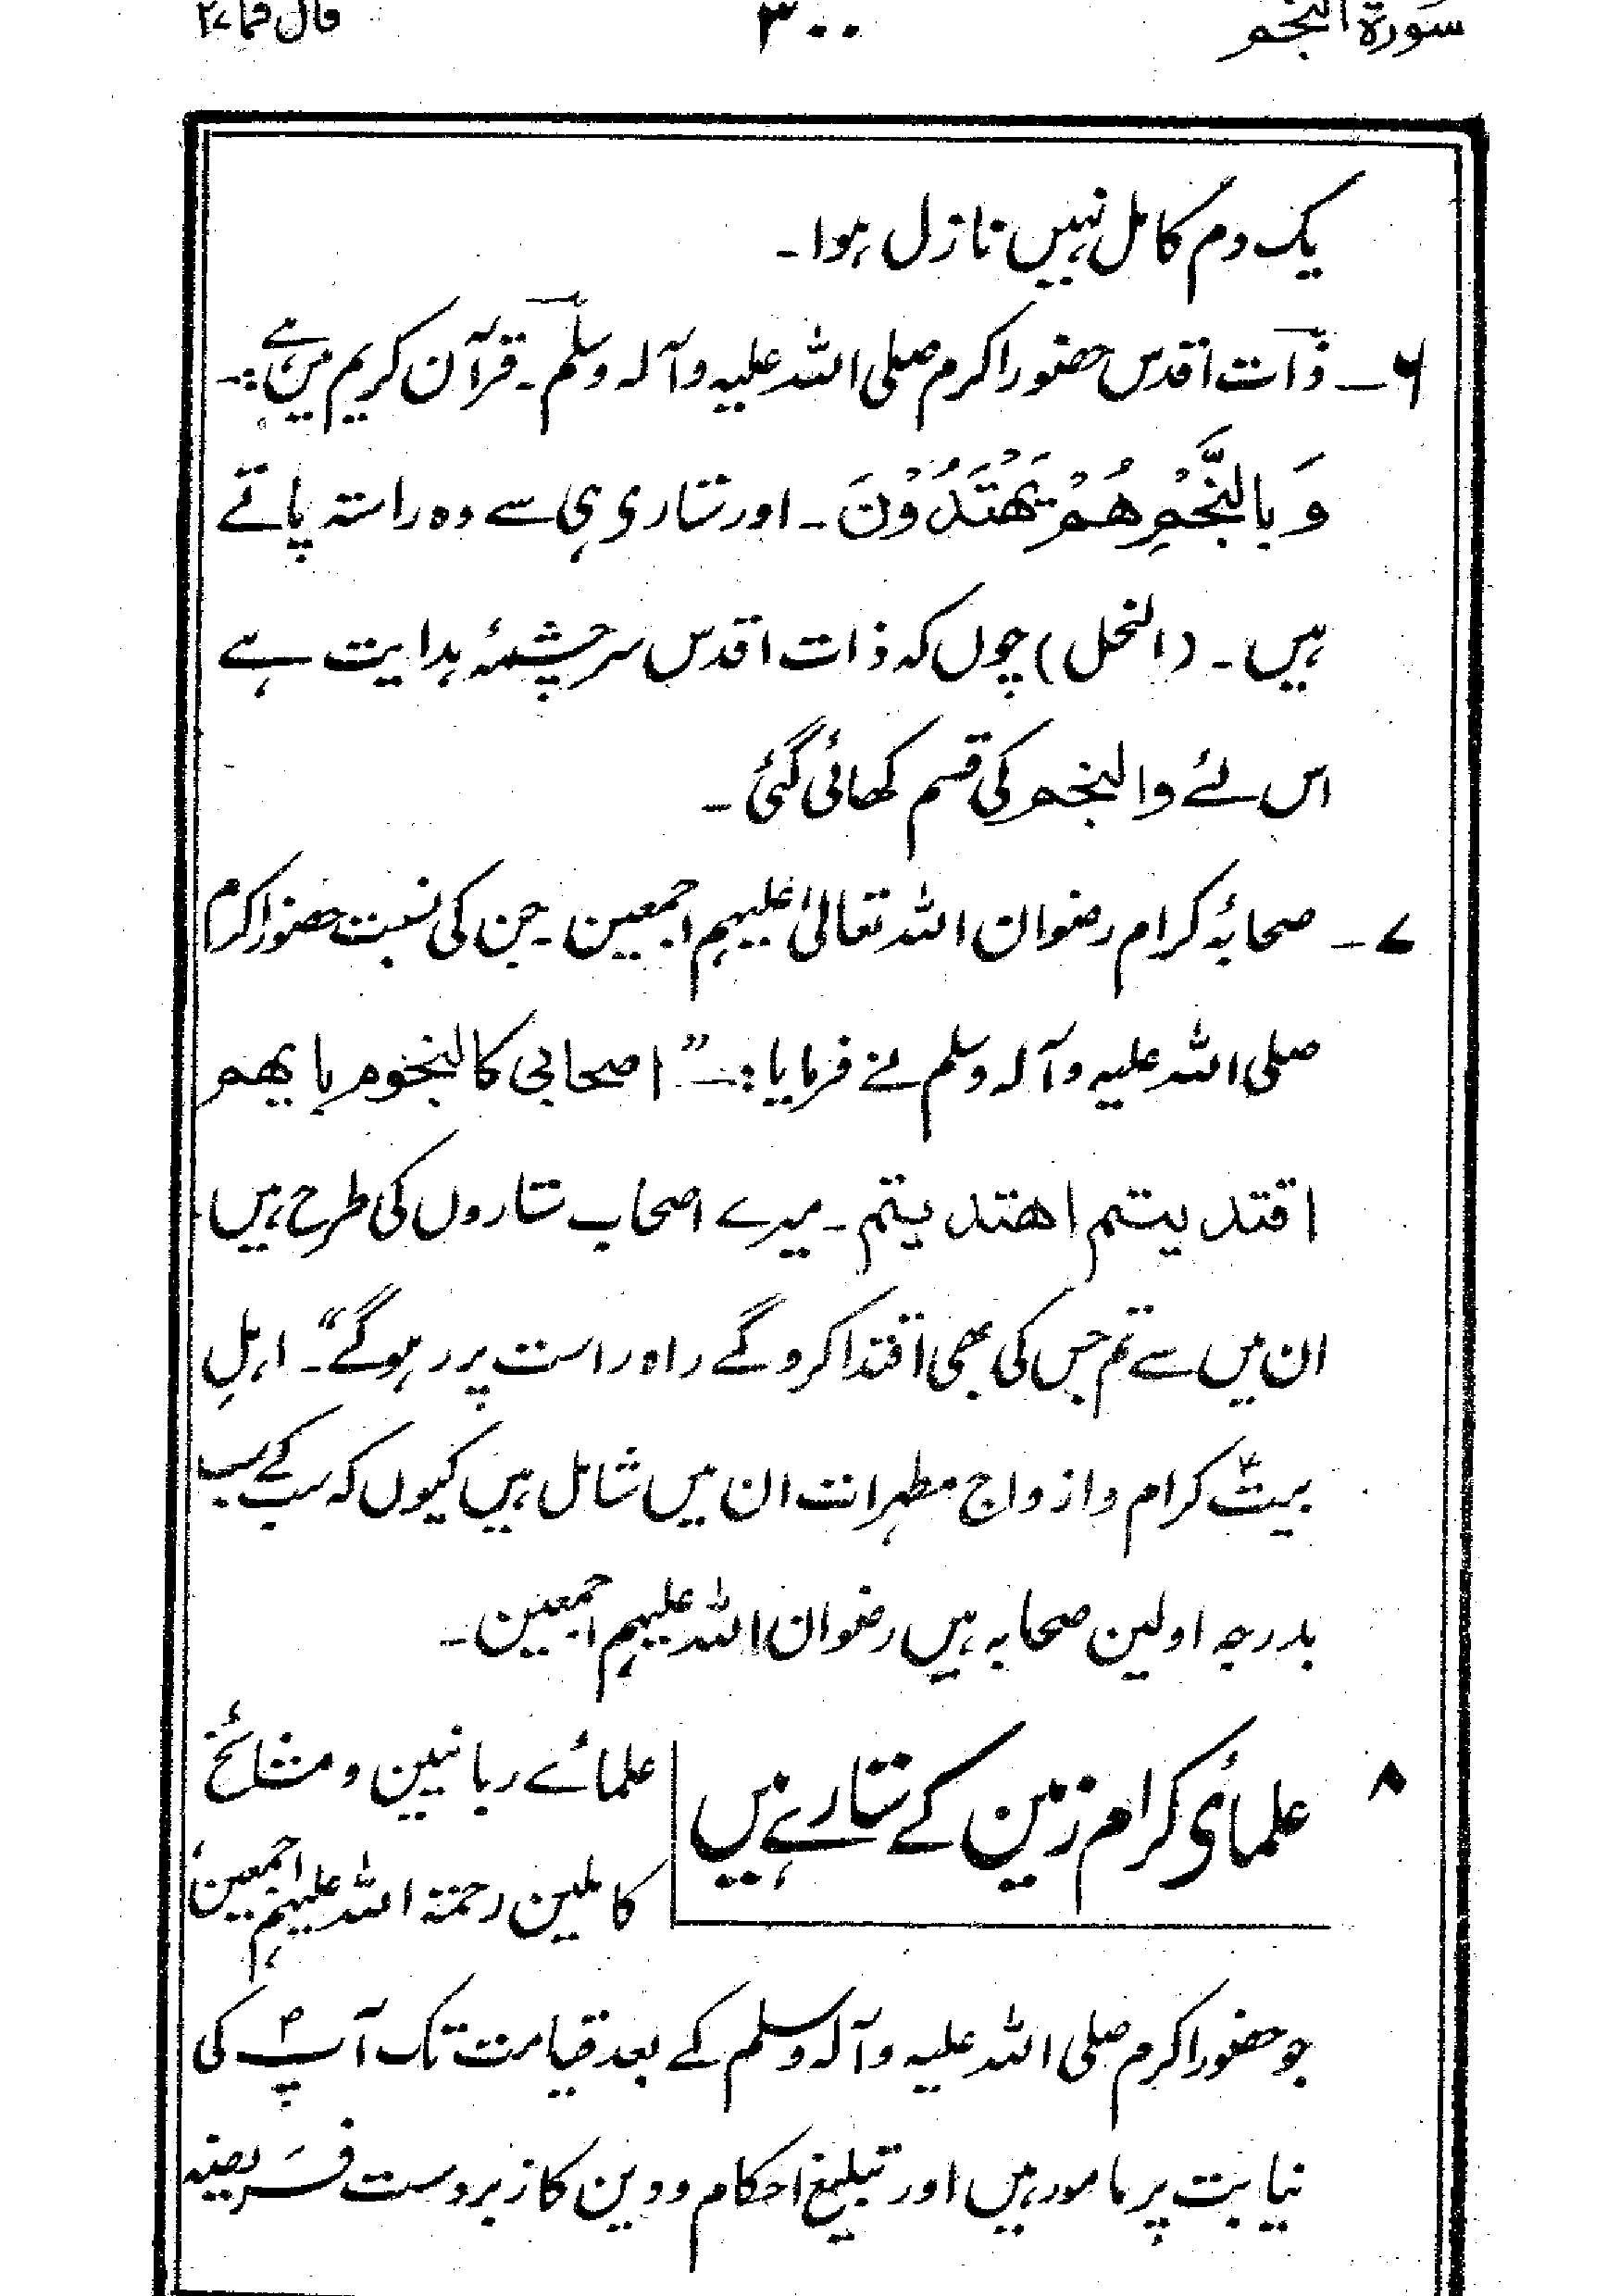 سورة النجم ۳۰۰ قال فما ۲۷
یک دم کامل نہیں نازل ہوا۔
۶۔ ذات اقدس حضور اکرم صلی اللہ علیہ وآلہ وسلم۔ قرآن کریم میں ہے:۔
وَ بِالنَّجْمِ هُمْ يَهْتَدُوْنَ۔ اور ستاری ہی سے وہ راستہ پاتے
ہیں۔ (النحل) چوں کہ ذات اقدس سرچشمۂ ہدایت ہے
اس لئے والنجم کی قسم کھائی گئی۔
۷۔ صحابۂ کرام رضوان اللہ تعالیٰ علیہم اجمعین۔ جن کی نسبت حضور اکرم
صلی اللہ علیہ وآلہ وسلم نے فرمایا:۔ ”اصحابی کالنجوم بایهم
اقتدیتم اهتدیتم۔ میرے اصحاب ستاروں کی طرح ہیں
ان میں سے تم جس کی بھی اقتدا کرو گے راہ راست پر رہو گے“۔ اہلِ
بیتؓ کرام و ازواج مطہرات ان میں شامل ہیں کیوں کہ سب کے سب
بدرجہ اولین صحابہ ہیں رضوان اللہ علیہم اجمعین۔
۸ علمائ کرام زمین کے ستارے ہیں
علمائے ربانیین و مشائخ
کاملین رحمة اللہ علیہم اجمعین
جو حضور اکرم صلی اللہ علیہ وآلہ وسلم کے بعد قیامت تک آپؐ کی
نیابت پر مامور ہیں اور تبلیغ احکام و دین کا زبردست فریضہ